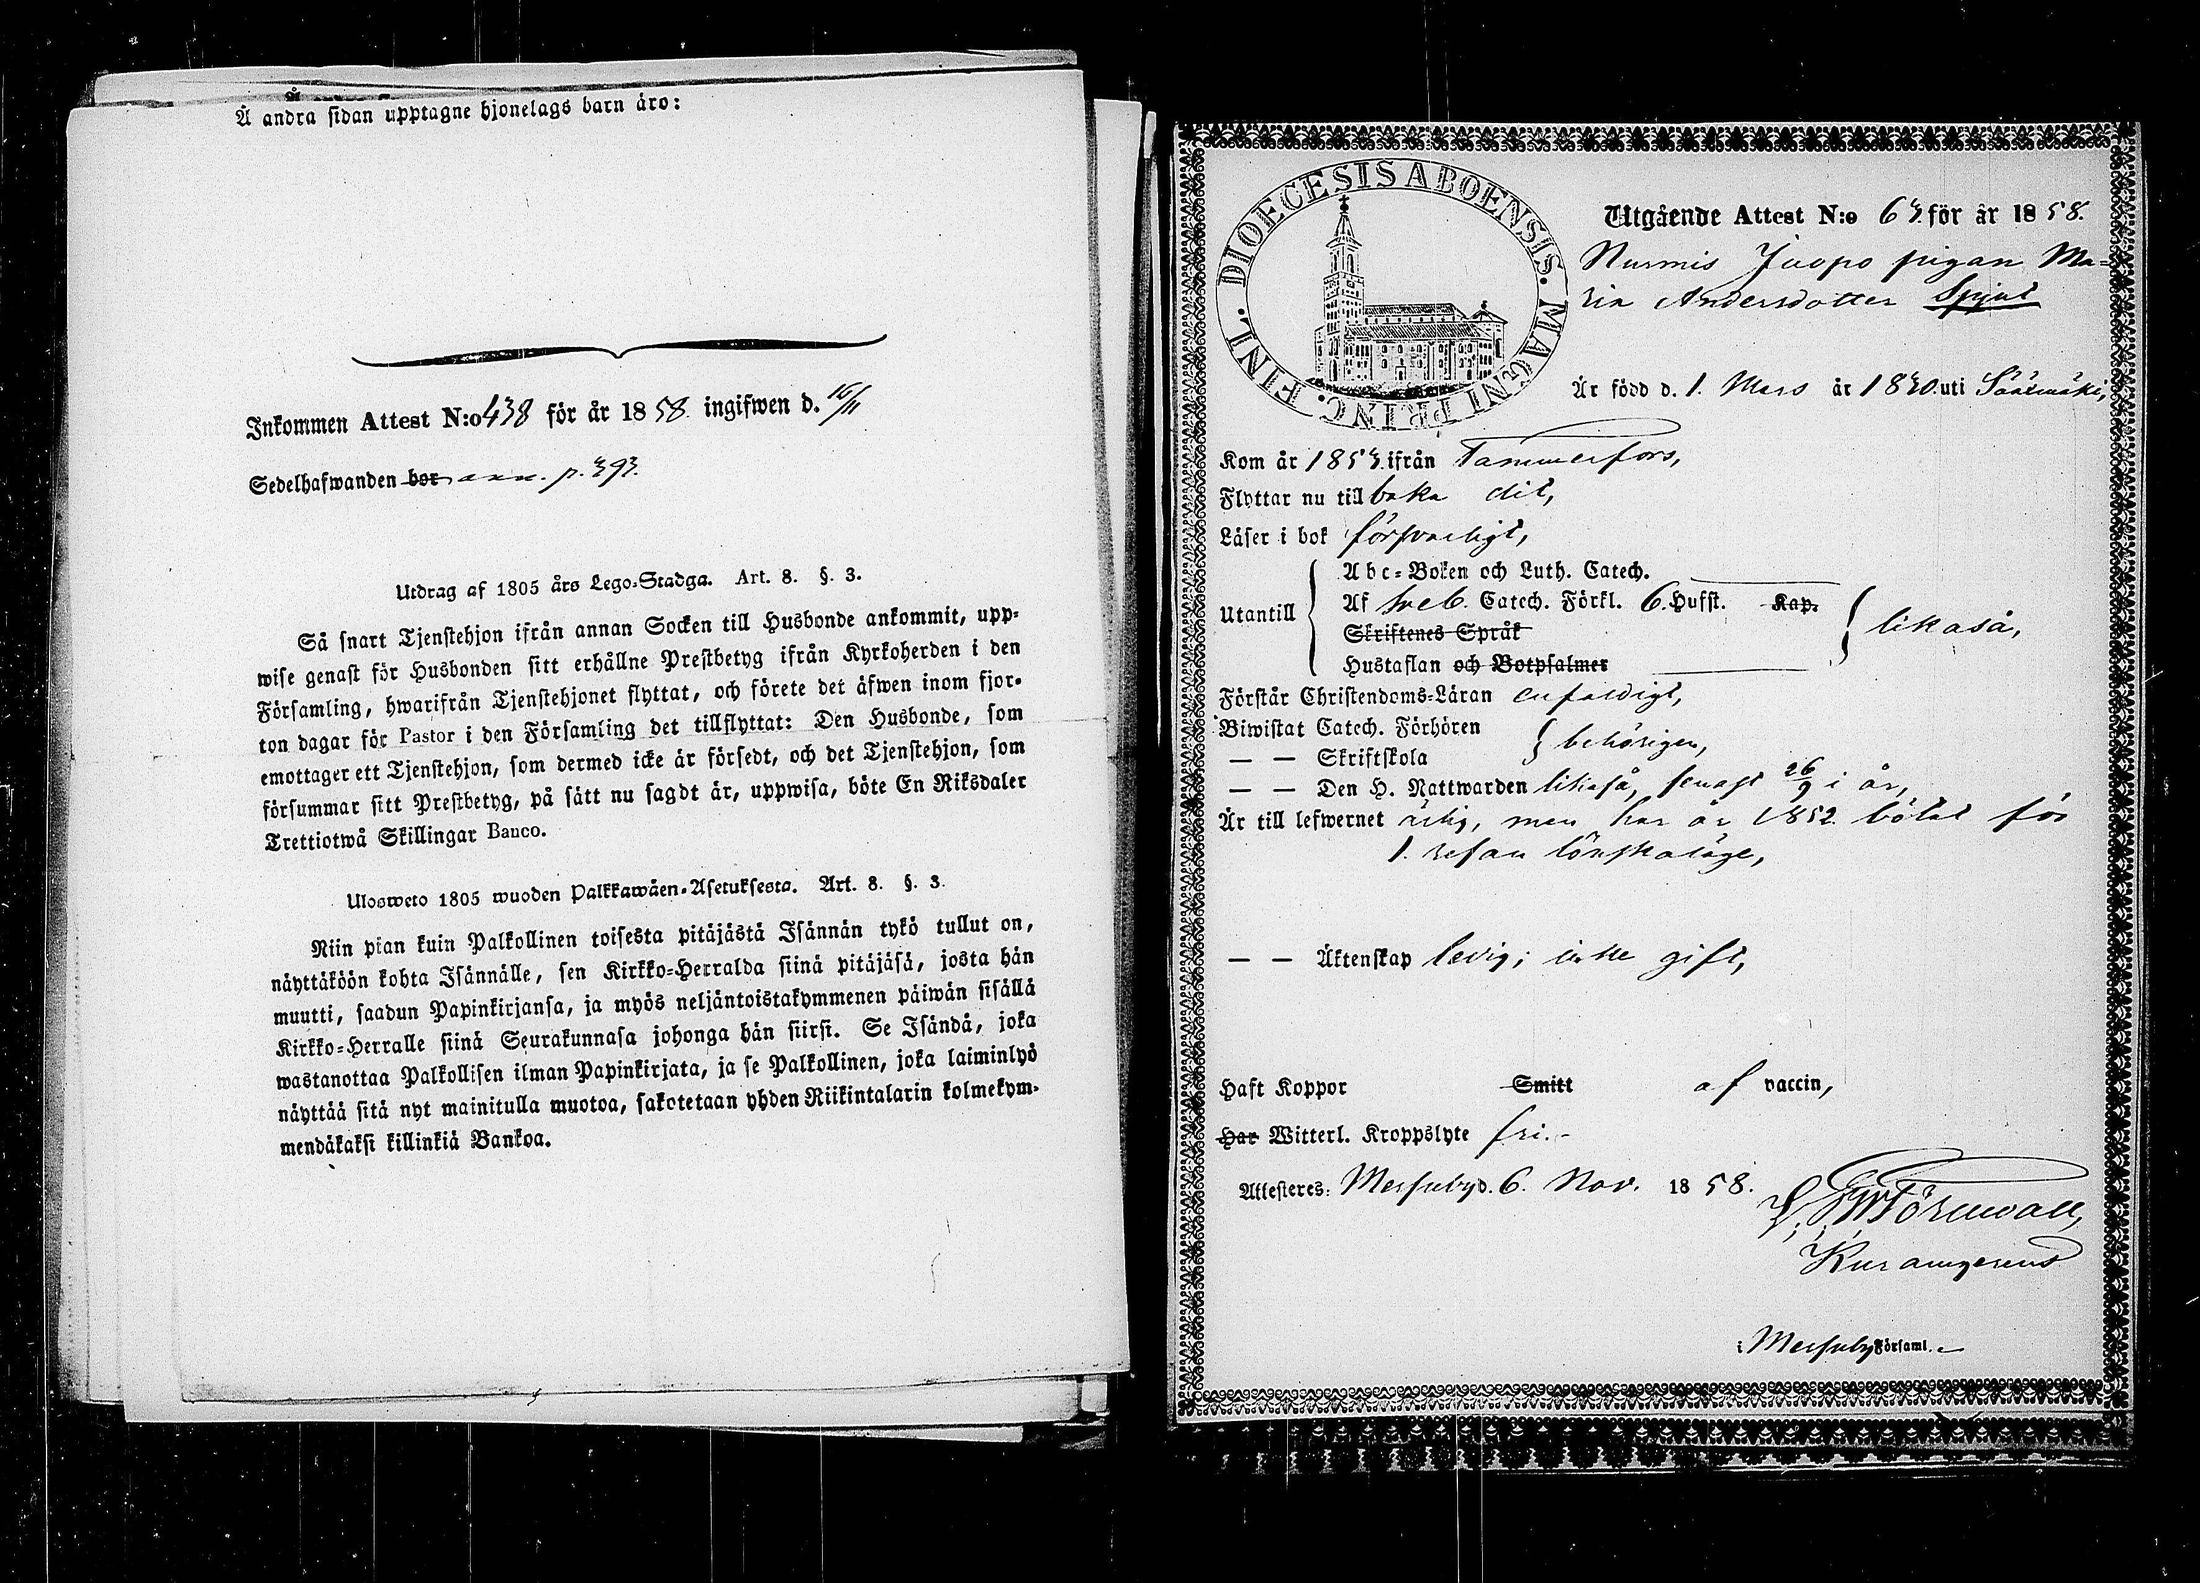 Å andra sidan upptagne hjonelags barn äro:
Inkommen Attest N:o 438 för år 1858. ingifwen d. 16/11
Sedelhafwanden bor ann. p. 393.
Utdrag af 1805 års Lego-Stadga. Art. 8. §. 3.
Så snart Tjenstehjon ifrån annan Socken till Husbonde ankommit, upp-
wise genast för Husbonden sitt erhållne Prestbetyg ifrån Kyrkoherden i den
Församling, hwarifrån Tjenstehjonet flyttat, och förete det äfwen inom fjor-
ton dagar för Pastor i den Församling det tillflyttat: Den Husbonde, som
emottager ett Tjenstehjon, som dermed icke är försedt, och det Tjenstehjon, som
försummar sitt Prestbetyg, på sätt nu sagdt är, uppwisa, böte En Riksdaler
Trettiotwå Skillingar Banco.
Ulosweto 1805 wuoden Palkkawäen-Asetuksesta. Art. 8. §. 3.
Niin pian kuin Palkollinen toisesta pitäjästä Isännän tykö tullut on,
näyttäköön kohta Isännälle, sen Kirkko-Herralda siinä pitäjäsä, josta hän
muutti, saadun Papinkirjansa, ja myös neljäntoistakymmenen päiwän sisällä
Kirkko-Herralle siinä Seurakunnasa johonga hän siirsi. Se Isändä, joka
wastanottaa Palkollisen ilman Papinkirjata, ja se Palkollinen, joka laiminlyö
näyttää sitä nyt mainitulla muotoa, sakotetaan yhden Riikintalarin kolmekym-
mendäkaksi killinkiä Bankoa.
DIOECESIS ABOENSIS. MAGNI PRINC. FINL.
Utgående Attest N:o 63. för år 1858.
Nurmis Juopo pigan Ma-
ria Andersdotter Spjut
Är född d. 1. Mars år 1830. uti Sääksmäki,
Kom år 1853. ifrån Tammerfors,
Flyttar nu till baka dit,
Läser i bok försvarligt,
Utantill
Abc-Boken och Luth. Catech.
Af Sveb. Catech. Förkl. 6. Hufst. Kap.
Skriftenes Språk
Hustaflan och Botpsalmer
likaså,
Förstår Christendoms-Läran enfaldigt,
Biwistat Catech. Förhören
— — Skriftskola
behörigen,
— — Den H. Nattwarden likaså, senast 26/9 i år,
Är till lefwernet ärlig, men har år 1852 bötat för
1. resan lönskaläge,
— — Äktenskap ledig; icke gift,
Haft Koppor Smitt af vaccin,
Har Witterl. Kroppslyte fri.-
Attesteres: Messuby d. 6. Nov. 1858.
Törnwall,
i Messuby Församl.